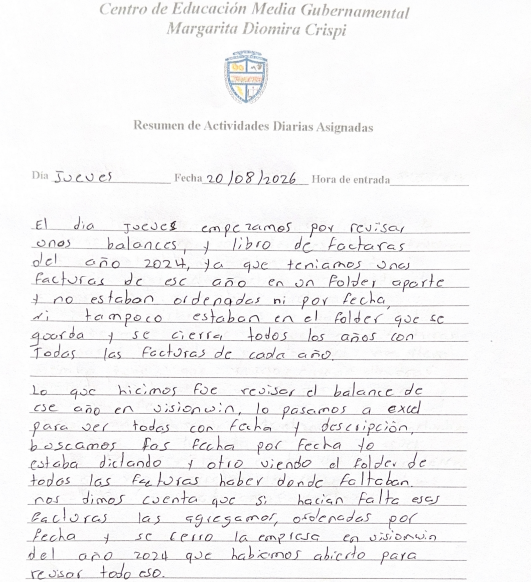 Centro de Educación Media Gubernamental
Margarita Diomira Crispi
Resumen de Actividades Diarias Asignadas
Día Jueves Fecha 20/08/2026 Hora de entrada
El dia Jueves empezamos por revisar
unos balances, y libro de facturas
del año 2024, ya que teniamos unas
facturas de ese año en un folder aparte
y no estaban ordenadas ni por fecha,
ni tampoco estaban en el folder que se
guarda y se cierra todos los años con
Todas las facturas de cada año.
Lo que hicimos fue revisar el balance de
ese año en visionwin, lo pasamos a excel
para ver todas con fecha y descripción,
buscamos fas fecha por fecha yo
estaba dictando y otro viendo el folder de
todas las facturas haber donde faltaban.
nos dimos cuenta que si hacian falta esas
facturas las agregamos, ordenadas por
fecha y se cerro la empresa en visionwin
del año 2024 que habiamos abierto para
revisar todo eso.